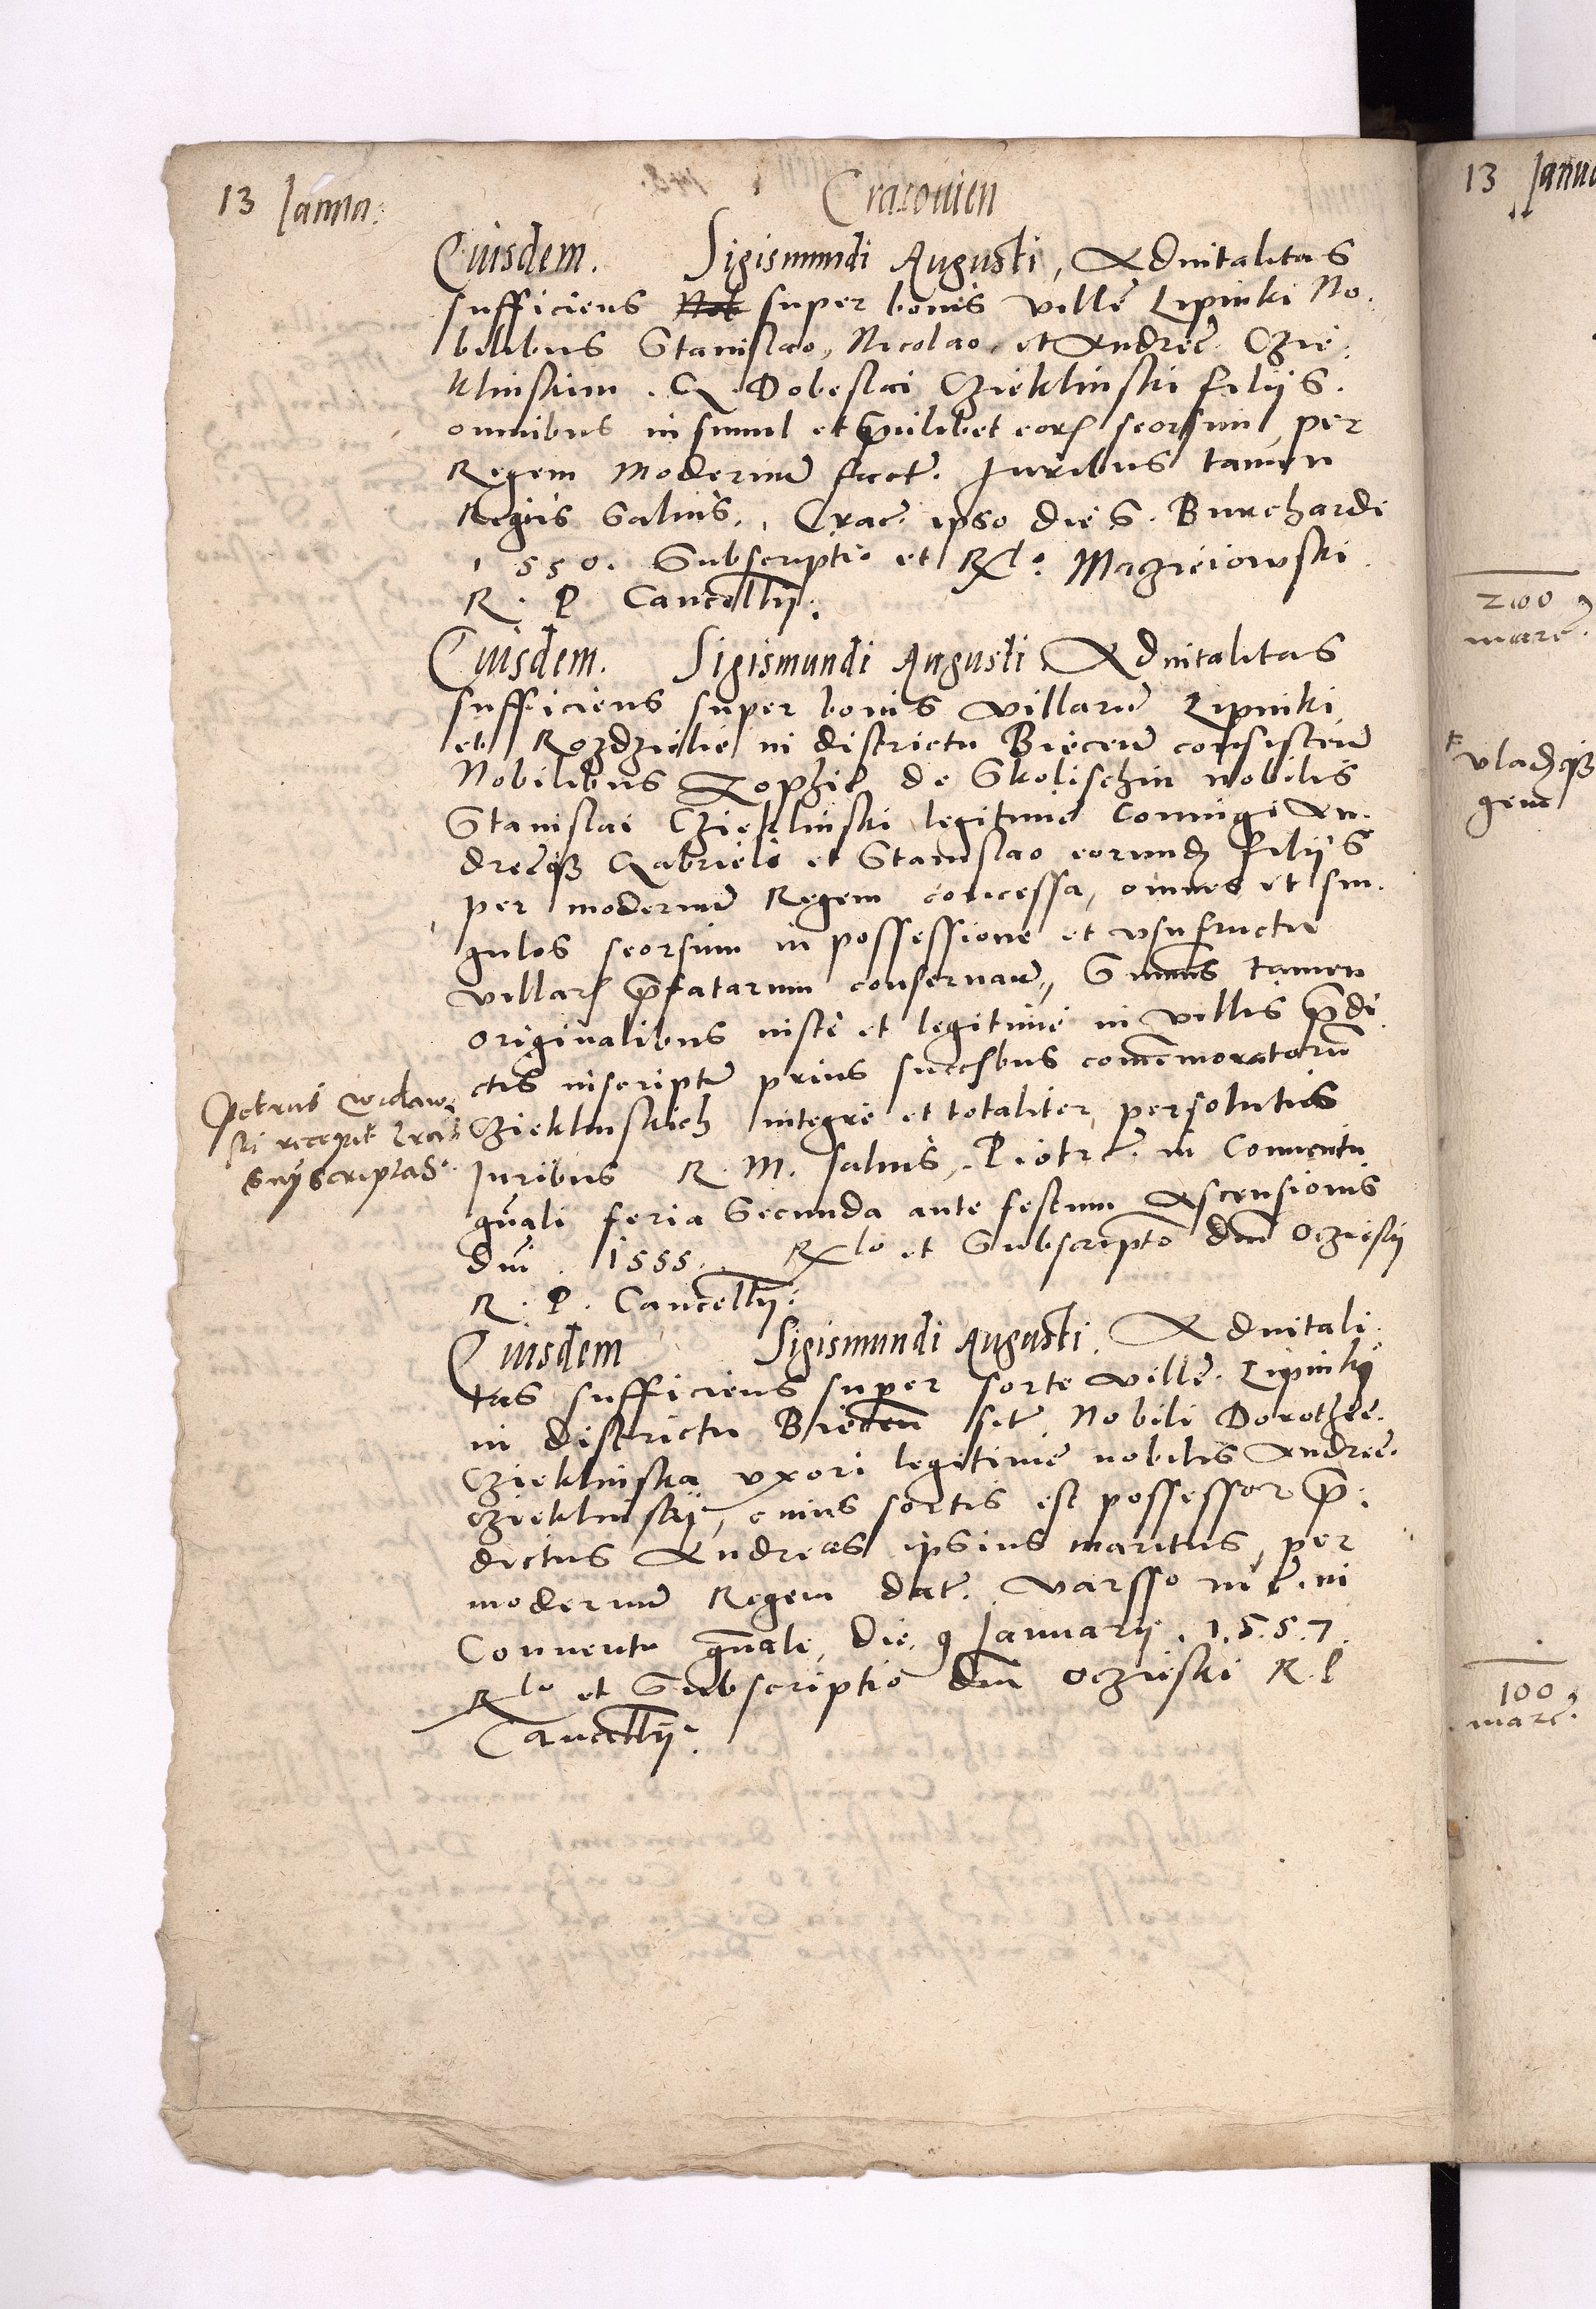 13 Janua:
Cracouien
Eiusdem. Sigismundi Augusti, Aduitalitas
sufficiens Nob super bonis ville Lipinki No.
bilibus Stanislao, Nicolao, et Andree Czie.
klinskim. G. Dobeslai Czieklinski filijs.
omnibus insimul et cuilibet eorum seorsim, per
Regem Modernum fact. Juribus tamen
Regiis Saluis. Crac. ipso die S. Burchardi
1550. Subscriptio et Rlo. Maczieiowski
R. P. Cancellarij.
Eiusdem. Sigismundi Augusti Aduitalitas
sufficiens super bonis villarum Lipinki
et Rozdzielie in districtu Biecen consisten
Nobilibus Zophie de Skolischin nobilis
Stanislai Czieklinski legitime Coniugi An.
dreeque Gabrieli et Stanislao eorund filijs
per modernum Regem concessa, omnes et sin.
gulos seorsim in possessione et vsufructu
villarum prefatarum conseruan, Summis tamen
originalibus iuste et legitime in villis predi
ctis inscriptis prius successoribus commemoratorum
Czieklinskich integre et totaliter persolutis
Juribus R. M. saluis, Piotrc. in Conuentu
gnali feria Secunda ante festum Ascensionis
dni. 1555. Rlo et Subscriptio dni Oczieskij
R. P. Cancellarij.
Petrus
ski recepit lras
Eiusdem Sigismundi Augusti. Aduitali.
tas sufficiens super sorte ville Lipinky
in districtu Biecen sit. Nobili Dorothee
Czieklinska vxori legitime nobilis Andree
Czieklinskij, cuius sortis est possessor pre.
dictus Andreas ipsius maritus, per
modernum Regem dat. Varsso
Conuentu gnale, die 9 Januarij. 1.5.5.7.
Rlo et Subscriptio dni Oczieski R. P
Cancellarij.
13 Janua
200
marc.
100
marc.